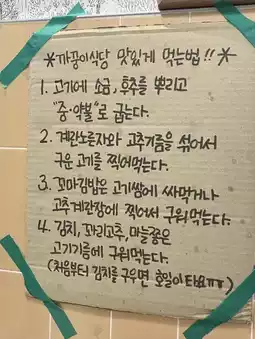 *까꿍이식당 맛있게 먹는법!!*
1. 고기에 소금, 후추를 뿌리고
"중·약불"로 굽는다.
2. 계란노른자와 고추기름을 섞어서
구운 고기를 찍어먹는다.
3. 꼬마김밥은 고기쌈에 싸먹거나
고추계란장에 찍어서 구워먹는다.
4. 김치, 꽈리고추, 마늘쫑은
고기기름에 구워먹는다.
(처음부터 김치를 구우면 호일이 타요ㅠㅠ)